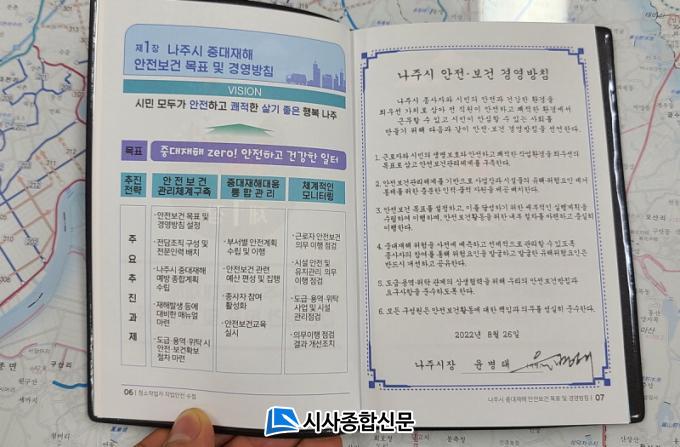 제1장 나주시 중대재해
안전보건 목표 및 경영방침
VISION
시민 모두가 안전하고 쾌적한 살기 좋은 행복 나주
목표 중대재해 zero! 안전하고 건강한 일터
추진
전략
안 전 보 건
관리체계구축
중대재해대응
통 합 관 리
체계적인
모니터링
주
요
추
진
과
제
· 안전보건 목표 및
경영방침 설정
· 전담조직 구성 및
전문인력 배치
· 나주시 중대재해
예방 종합계획
수립
· 재해발생 등에
대비한 매뉴얼
마련
· 도급·용역·위탁 시
안전·보건확보
절차 마련
· 부서별 안전계획
수립 및 이행
· 안전보건 관련
예산 편성 및 집행
· 종사자 참여
활성화
· 안전보건교육
실시
· 근로자 안전보건
의무 이행 점검
· 시설 안전 및
유지관리 의무
이행 점검
· 도급·용역·위탁
사업 및 시설
관리점검
· 의무이행 점검
결과 개선조치
06 | 청소작업자 작업안전 수첩
나주시 안전·보건 경영방침
나주시 종사자와 시민의 안전과 건강한 환경을
최우선 가치로 삼아 전 직원이 안전하고 쾌적한 환경에서
근무할 수 있고 시민이 안심할 수 있는 사회를
만들기 위해 다음과 같이 안전·보건 경영방침을 선언한다.
1. 근로자와 시민의 생명보호와 안전하고 쾌적한 작업환경을 최우선의
목표로 삼고 안전보건관리체계를 구축한다.
2. 안전보건관리체계를 기반으로 사업장과 시설물의 유해·위험요인 제거
통제를 위한 충분한 인적·물적 자원을 제공 배치한다.
3. 안전보건 목표를 설정하고, 이를 달성하기 위한 세부적인 실행계획을
수립하여 이행하며, 안전보건활동을 위한 내부 절차를 마련하고 충실히
이행한다.
4. 중대재해 위험을 사전에 예측하고 선제적으로 관리할 수 있도록
종사자의 참여를 통해 위험요인을 발굴하고 발굴한 유해위험요인은
반드시 개선하고 공유한다.
5. 도급·용역·위탁 관계의 상생협력을 위해 우리의 안전보건방침과
요구사항을 준수하도록 한다.
6. 모든 구성원은 안전보건활동에 대한 책임과 의무를 성실히 준수한다.
2022년 8월 26일
나주시장 윤병태
나주시 중대재해 안전보건 목표 및 경영방침 | 07
시사종합신문